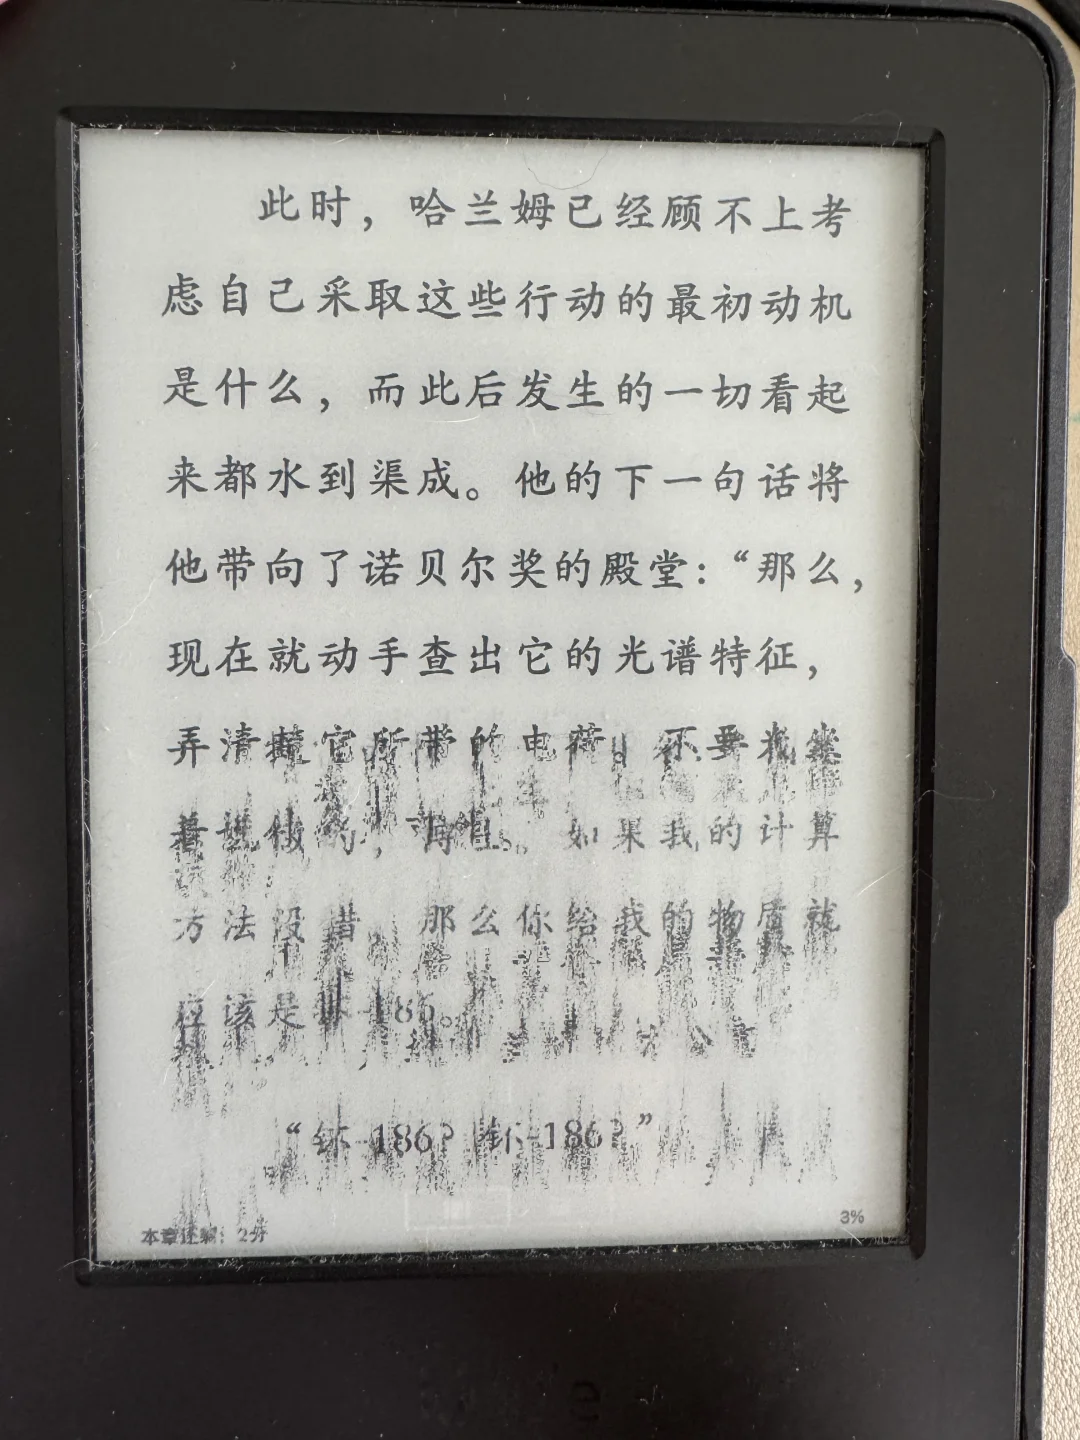 此时，哈兰姆已经顾不上考
虑自己采取这些行动的最初动机
是什么，而此后发生的一切看起
来都水到渠成。他的下一句话将
他带向了诺贝尔奖的殿堂：“那么，
现在就动手查出它的光谱特征，
弄清楚它所带的电荷。还要我
如果我的计算
方法没错，那么你给我的物质就
应该是 186。
“钚-186？钚-186？”
本章还剩：2分
3%